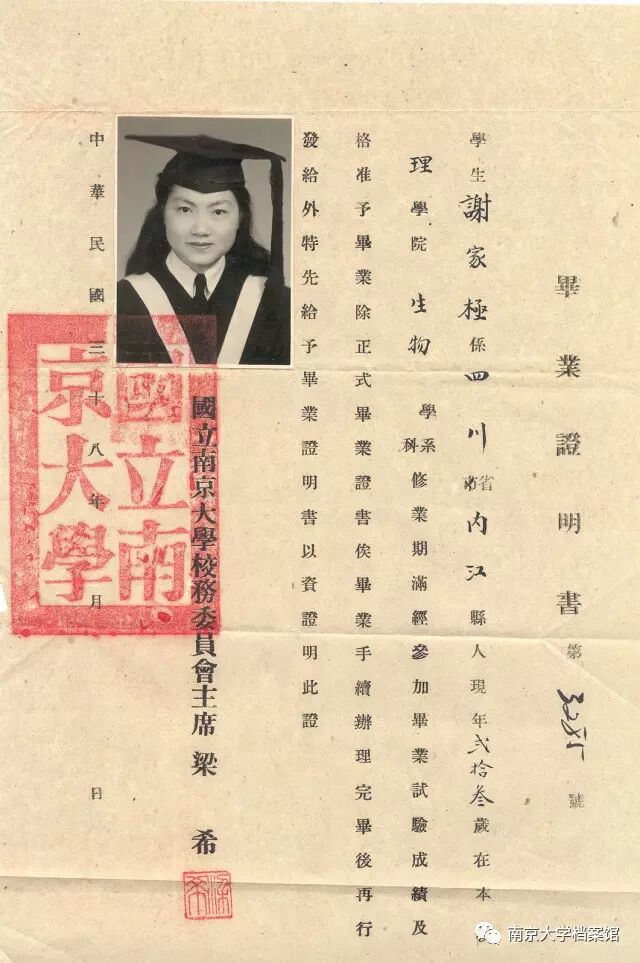 畢業證明書 第 號
學生謝家極係四川省市內江縣人現年弍拾叁歲在本
理學院生物學系科修業期滿經參加畢業試驗成績及
格准予畢業除正式畢業證書俟畢業手續辦理完畢後再行
發給外特先給予畢業證明書以資證明此證
國立南京大學校務委員會主席梁希
中華民國三十八年 月 日
國立南
京大學
南京大学档案馆